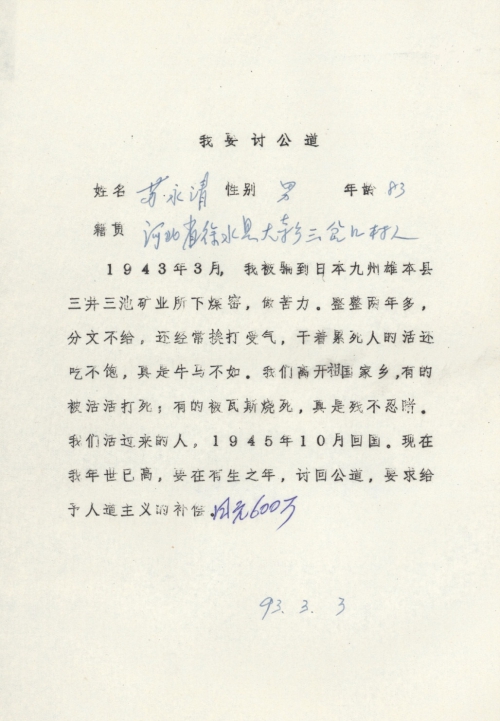 我要讨公道
姓名 苏永清 性别 男 年龄 83
籍贯 河北省徐水县大 乡三岔口村人
1943年3月，我被骗到日本九州雄本县
三井三池矿业所下煤窑，做苦力。整整两年多，
分文不给，还经常挨打受气，干着累死人的活还
吃不饱，真是牛马不如。我们离开祖国家乡，有的
被活活打死；有的被瓦斯烧死，真是残不忍睹。
我们活过来的人，1945年10月回国。现在
我年世已高，要在有生之年，讨回公道，要求给
予人道主义的补偿。日元600万
93. 3. 3